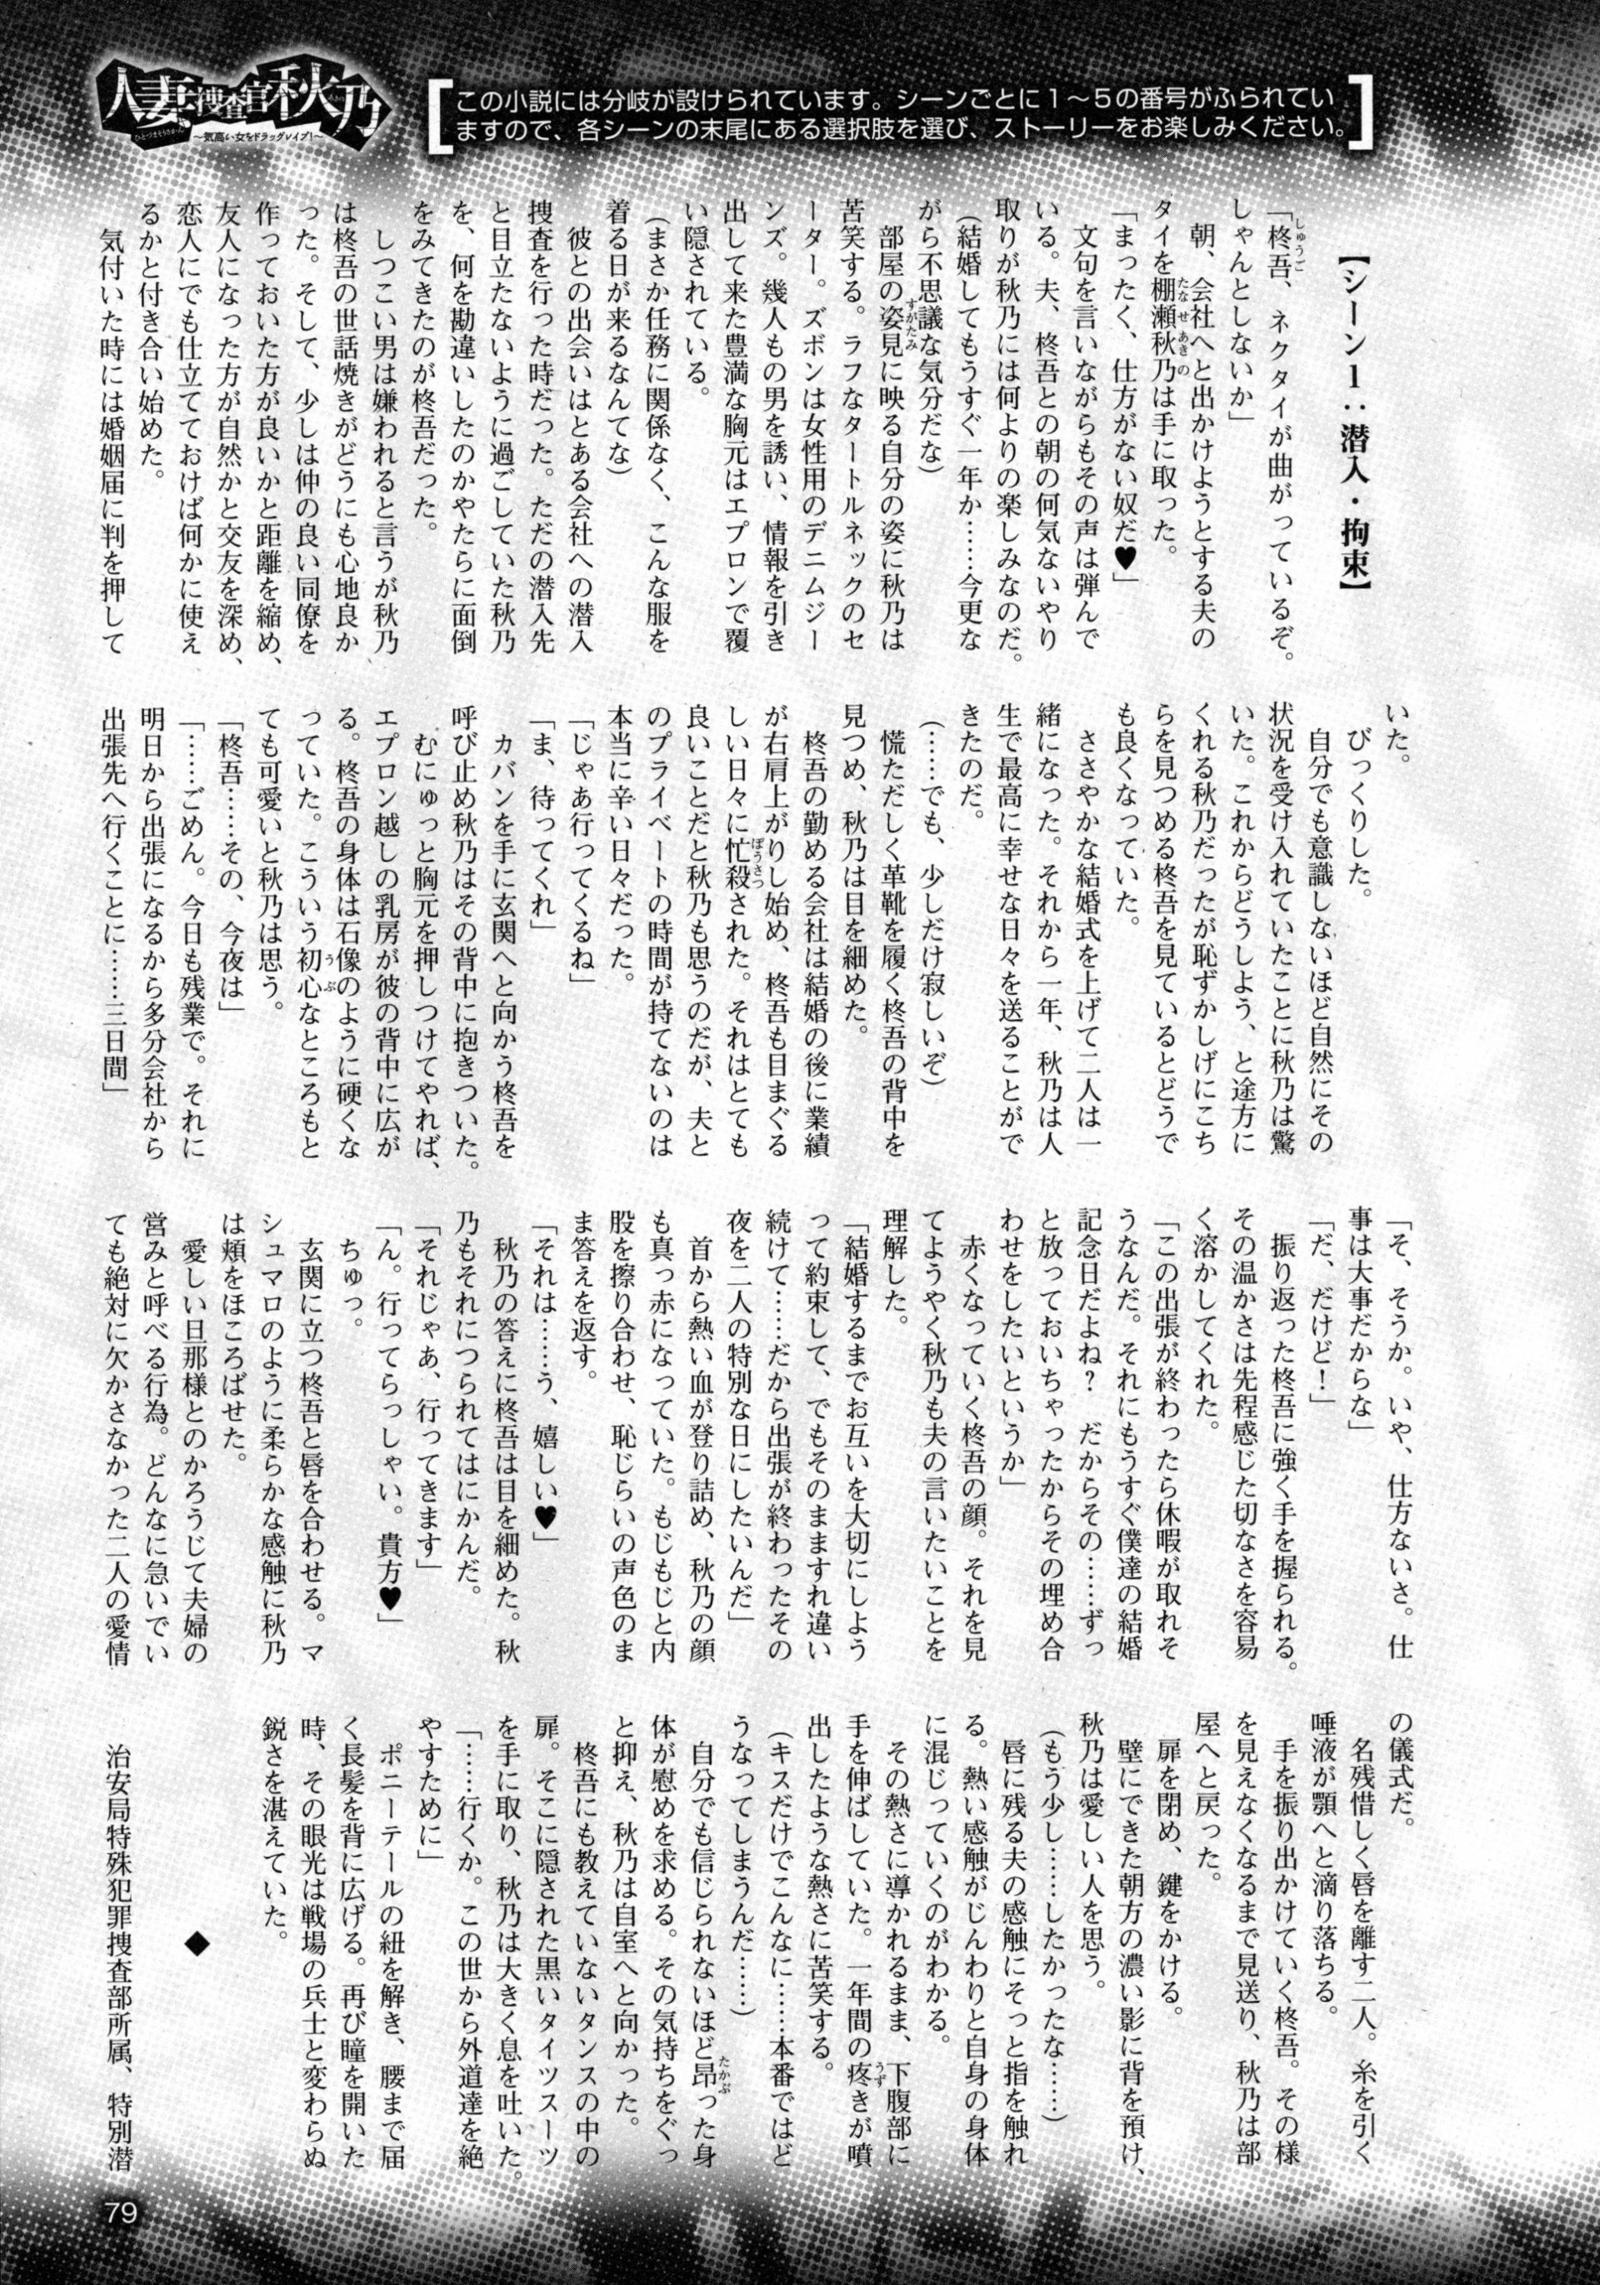 人妻捜査官秋乃
ひとづまそうさかん
～気高い女をドラッグレイプ！～
この小説には分岐が設けられています。シーンごとに１～５の番号がふられてい
ますので、各シーンの末尾にある選択肢を選び、ストーリーをお楽しみください。
【シーン１：潜入・拘束】
「柊吾、ネクタイが曲がっているぞ。
しゃんとしないか」
朝、会社へと出かけようとする夫の
タイを棚瀬秋乃は手に取った。
「まったく、仕方がない奴だ♥」
文句を言いながらもその声は弾んで
いる。夫、柊吾との朝の何気ないやり
取りが秋乃には何よりの楽しみなのだ。
（結婚してもうすぐ一年か……今更な
がら不思議な気分だな）
部屋の姿見に映る自分の姿に秋乃は
苦笑する。ラフなタートルネックのセ
ーター。ズボンは女性用のデニムジー
ンズ。幾人もの男を誘い、情報を引き
出して来た豊満な胸元はエプロンで覆
い隠されている。
（まさか任務に関係なく、こんな服を
着る日が来るなんてな）
彼との出会いはとある会社への潜入
捜査を行った時だった。ただの潜入先
と目立たないように過ごしていた秋乃
を、何を勘違いしたのかやたらに面倒
をみてきたのが柊吾だった。
しつこい男は嫌われると言うが秋乃
は柊吾の世話焼きがどうにも心地良か
った。そして、少しは仲の良い同僚を
作っておいた方が良いかと距離を縮め、
友人になった方が自然かと交友を深め、
恋人にでも仕立てておけば何かに使え
るかと付き合い始めた。
気付いた時には婚姻届に判を押して
いた。
びっくりした。
自分でも意識しないほど自然にその
状況を受け入れていたことに秋乃は驚
いた。これからどうしよう、と途方に
くれる秋乃だったが恥ずかしげにこち
らを見つめる柊吾を見ているとどうで
も良くなっていた。
ささやかな結婚式を上げて二人は一
緒になった。それから一年、秋乃は人
生で最高に幸せな日々を送ることがで
きたのだ。
（……でも、少しだけ寂しいぞ）
慌ただしく革靴を履く柊吾の背中を
見つめ、秋乃は目を細めた。
柊吾の勤める会社は結婚の後に業績
が右肩上がりし始め、柊吾も目まぐる
しい日々に忙殺された。それはとても
良いことだと秋乃も思うのだが、夫と
のプライベートの時間が持てないのは
本当に辛い日々だった。
「じゃあ行ってくるね」
「ま、待ってくれ」
カバンを手に玄関へと向かう柊吾を
呼び止め秋乃はその背中に抱きついた。
むにゅっと胸元を押しつけてやれば、
エプロン越しの乳房が彼の背中に広が
る。柊吾の身体は石像のように硬くな
っていた。こういう初心なところもと
ても可愛いと秋乃は思う。
「柊吾……その、今夜は」
「……ごめん。今日も残業で。それに
明日から出張になるから多分会社から
出張先へ行くことに……三日間」
「そ、そうか。いや、仕方ないさ。仕
事は大事だからな」
「だ、だけど！」
振り返った柊吾に強く手を握られる。
その温かさは先程感じた切なさを容易
く溶かしてくれた。
「この出張が終わったら休暇が取れそ
うなんだ。それにもうすぐ僕達の結婚
記念日だよね？　だからその……ずっ
と放っておいちゃったからその埋め合
わせをしたいというか」
赤くなっていく柊吾の顔。それを見
てようやく秋乃も夫の言いたいことを
理解した。
「結婚するまでお互いを大切にしよう
って約束して、でもそのまますれ違い
続けて……だから出張が終わったその
夜を二人の特別な日にしたいんだ」
首から熱い血が登り詰め、秋乃の顔
も真っ赤になっていた。もじもじと内
股を擦り合わせ、恥じらいの声色のま
ま答えを返す。
「それは……う、嬉しい♥」
秋乃の答えに柊吾は目を細めた。秋
乃もそれにつられてはにかんだ。
「それじゃあ、行ってきます」
「ん。行ってらっしゃい。貴方♥」
ちゅっ。
玄関に立つ柊吾と唇を合わせる。マ
シュマロのように柔らかな感触に秋乃
は頬をほころばせた。
愛しい旦那様とのかろうじて夫婦の
営みと呼べる行為。どんなに急いでい
ても絶対に欠かさなかった二人の愛情
の儀式だ。
名残惜しく唇を離す二人。糸を引く
唾液が顎へと滴り落ちる。
手を振り出かけていく柊吾。その様
を見えなくなるまで見送り、秋乃は部
屋へと戻った。
扉を閉め、鍵をかける。
壁にできた朝方の濃い影に背を預け、
秋乃は愛しい人を思う。
（もう少し……したかったな……）
唇に残る夫の感触にそっと指を触れ
る。熱い感触がじんわりと自身の身体
に混じっていくのがわかる。
その熱さに導かれるまま、下腹部に
手を伸ばしていた。一年間の疼きが噴
出したような熱さに苦笑する。
（キスだけでこんなに……本番ではど
うなってしまうんだ……）
自分でも信じられないほど昂った身
体が慰めを求める。その気持ちをぐっ
と抑え、秋乃は自室へと向かった。
柊吾にも教えていないタンスの中の
扉。そこに隠された黒いタイツスーツ
を手に取り、秋乃は大きく息を吐いた。
「……行くか。この世から外道達を絶
やすために」
ポニーテールの紐を解き、腰まで届
く長髪を背に広げる。再び瞳を開いた
時、その眼光は戦場の兵士と変わらぬ
鋭さを湛えていた。
◆
治安局特殊犯罪捜査部所属、特別潜
79